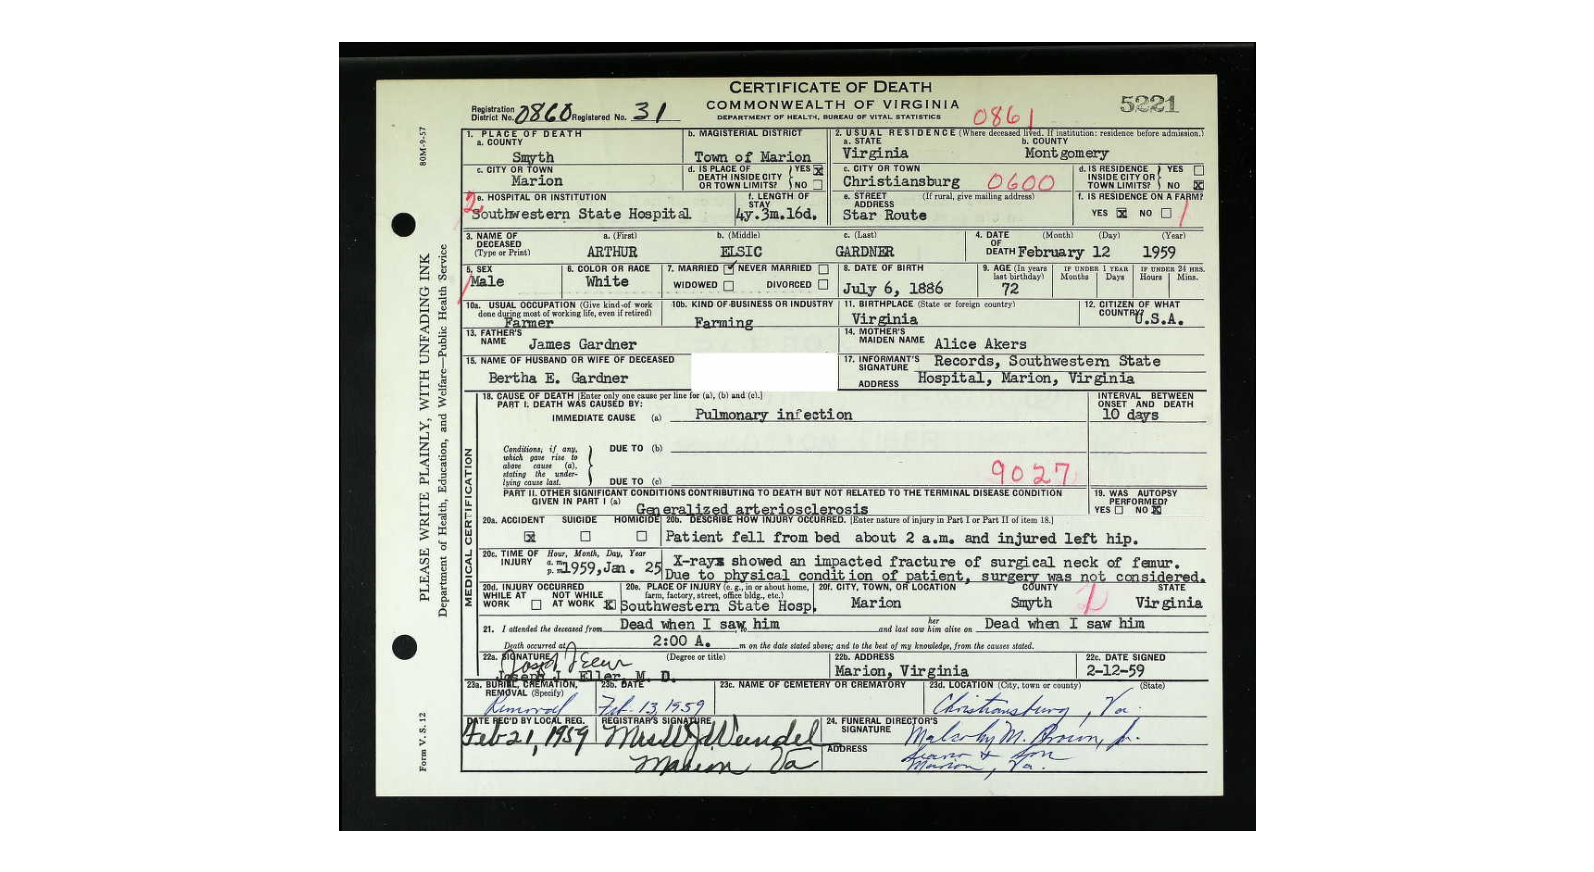 CERTIFICATE OF DEATH
COMMONWEALTH OF VIRGINIA
DEPARTMENT OF HEALTH, BUREAU OF VITAL STATISTICS
5221
Registration District No. 0860 Registered No. 31
0861
80M-9-57
PLEASE WRITE PLAINLY, WITH UNFADING INK
Department of Health, Education, and Welfare—Public Health Service
Form V. S. 12
1. PLACE OF DEATH
a. COUNTY
Smyth
b. MAGISTERIAL DISTRICT
Town of Marion
2. USUAL RESIDENCE (Where deceased lived. If institution: residence before admission.)
a. STATE
Virginia
b. COUNTY
Montgomery
c. CITY OR TOWN
Marion
d. IS PLACE OF DEATH INSIDE CITY OR TOWN LIMITS? YES NO
c. CITY OR TOWN
Christiansburg 0600
d. IS RESIDENCE INSIDE CITY OR TOWN LIMITS? YES NO
2
e. HOSPITAL OR INSTITUTION
Southwestern State Hospital
f. LENGTH OF STAY
4y.3m.16d.
e. STREET ADDRESS (If rural, give mailing address)
Star Route
f. IS RESIDENCE ON A FARM?
YES NO
3. NAME OF DECEASED (Type or Print)
a. (First) b. (Middle) c. (Last)
ARTHUR ELSIC GARDNER
4. DATE OF DEATH (Month) (Day) (Year)
February 12 1959
5. SEX
Male
6. COLOR OR RACE
White
7. MARRIED NEVER MARRIED
WIDOWED DIVORCED
8. DATE OF BIRTH
July 6, 1886
9. AGE (In years last birthday)
72
IF UNDER 1 YEAR
Months Days
IF UNDER 24 HRS.
Hours Mins.
10a. USUAL OCCUPATION (Give kind of work done during most of working life, even if retired)
Farmer
10b. KIND OF BUSINESS OR INDUSTRY
Farming
11. BIRTHPLACE (State or foreign country)
Virginia
12. CITIZEN OF WHAT COUNTRY?
U.S.A.
13. FATHER'S NAME
James Gardner
14. MOTHER'S MAIDEN NAME
Alice Akers
15. NAME OF HUSBAND OR WIFE OF DECEASED
Bertha E. Gardner
17. INFORMANT'S SIGNATURE Records, Southwestern State
ADDRESS Hospital, Marion, Virginia
MEDICAL CERTIFICATION
18. CAUSE OF DEATH [Enter only one cause per line for (a), (b) and (c).]
PART I. DEATH WAS CAUSED BY:
IMMEDIATE CAUSE (a) Pulmonary infection
INTERVAL BETWEEN ONSET AND DEATH
10 days
Conditions, if any, which gave rise to above cause (a), stating the underlying cause last.
DUE TO (b)
DUE TO (c)
9027
PART II. OTHER SIGNIFICANT CONDITIONS CONTRIBUTING TO DEATH BUT NOT RELATED TO THE TERMINAL DISEASE CONDITION GIVEN IN PART I (a)
Generalized arteriosclerosis
19. WAS AUTOPSY PERFORMED?
YES NO
20a. ACCIDENT SUICIDE HOMICIDE
20b. DESCRIBE HOW INJURY OCCURRED. [Enter nature of injury in Part I or Part II of item 18.]
Patient fell from bed about 2 a.m. and injured left hip.
X-rays showed an impacted fracture of surgical neck of femur.
Due to physical condition of patient, surgery was not considered.
20c. TIME OF INJURY Hour, Month, Day, Year
a. m. p. m. 1959, Jan. 25
20d. INJURY OCCURRED
WHILE AT WORK NOT WHILE AT WORK
20e. PLACE OF INJURY (e. g., in or about home, farm, factory, street, office bldg., etc.)
Southwestern State Hosp.
20f. CITY, TOWN, OR LOCATION COUNTY STATE
Marion Smyth Virginia
21. I attended the deceased from Dead when I saw him and last saw her him alive on Dead when I saw him
Death occurred at 2:00 A. m on the date stated above; and to the best of my knowledge, from the causes stated.
22a. SIGNATURE (Degree or title)
Joseph J. Eller, M. D.
22b. ADDRESS
Marion, Virginia
22c. DATE SIGNED
2-12-59
23a. BURIAL, CREMATION, REMOVAL (Specify)
Removal
23b. DATE
Feb. 13, 1959
23c. NAME OF CEMETERY OR CREMATORY
23d. LOCATION (City, town or county) (State)
Christiansburg, Va.
DATE REC'D BY LOCAL REG.
Feb 21, 1959
REGISTRAR'S SIGNATURE
Marion Va
24. FUNERAL DIRECTOR'S SIGNATURE
M. Brown, Jr.
ADDRESS
& Son
Marion, Va.